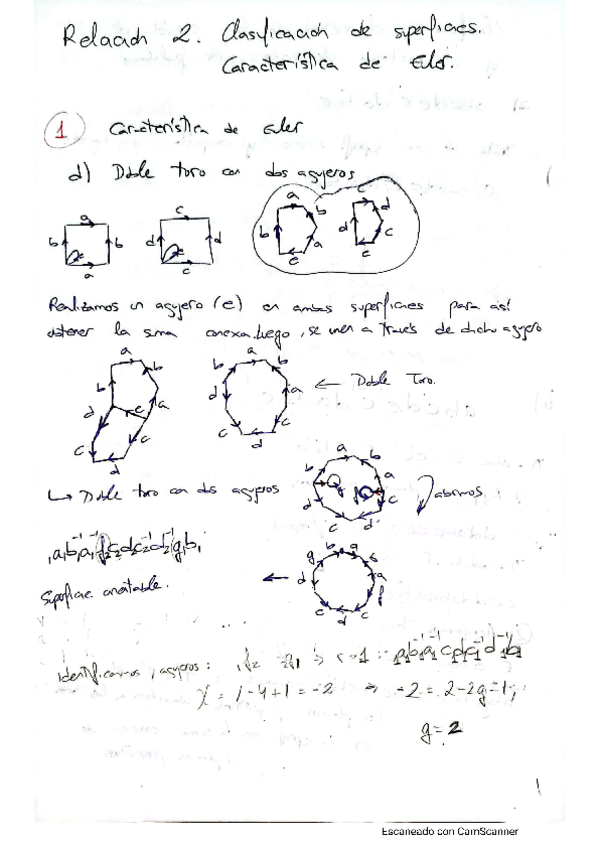 Relación 2. Clasificación de superficies.
Característica de Euler.
1 Característica de Euler
d) Doble toro con dos agujeros
a
b b
a
e
c
d d
c
e
a
b b
a
e
c
d d
c
Realizamos un agujero (e) en ambas superficies para así
obtener la suma conexa. Luego, se unen a través de dicho agujero
a
b b
a
e
d
c c
d
a
b b
d a
c c
d
← Doble Toro.
↳ Doble toro con dos agujeros
abrimos
Superficie orientable.
Identificamos, agujeros:
χ = 1-4+1 = -2 ⇒ -2 = 2-2g-1;
g=2
Escaneado con CamScanner